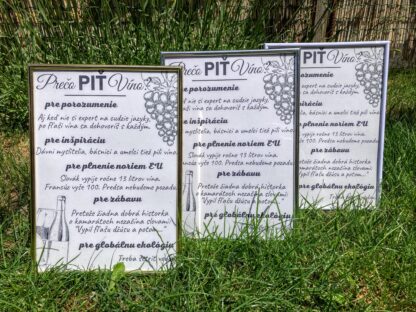 Prečo PIŤ Víno?
pre porozumenie
Aj keď nie si expert na cudzie jazyky,
po fľaši vína sa dohovoríš s každým.
pre inšpiráciu
Dávni myslitelia, básnici a umelci tiež pili vína
pre plnenie noriem EU
Slovák vypije ročne 13 litrov vína.
Francúz vyše 100. Predsa nebudeme pozadu
pre zábavu
Pretože žiadna dobrá historka
o kamarátoch nezačína slovami:
"Vypil fľašu džúsu a potom..."
pre globálnu ekológiu
Treba šetriť vodu
Prečo PIŤ Víno?
pre porozumenie
nie si expert na cudzie jazyky,
vína sa dohovoríš s každým.
pre inšpiráciu
myslitelia, básnici a umelci tiež pili vína
pre plnenie noriem EU
Slovák vypije ročne 13 litrov vína.
vyše 100. Predsa nebudeme pozadu
pre zábavu
Pretože žiadna dobrá historka
o kamarátoch nezačína slovami:
"Vypil fľašu džúsu a potom..."
pre globálnu ekológiu
PIŤ Víno?
porozumenie
expert na cudzie jazyky,
sa dohovoríš s každým.
inšpiráciu
básnici a umelci tiež pili vína
plnenie noriem EU
vypije ročne 13 litrov vína.
100. Predsa nebudeme pozadu
pre zábavu
žiadna dobrá historka
kamarátoch nezačína slovami:
fľašu džúsu a potom..."
globálnu ekológiu